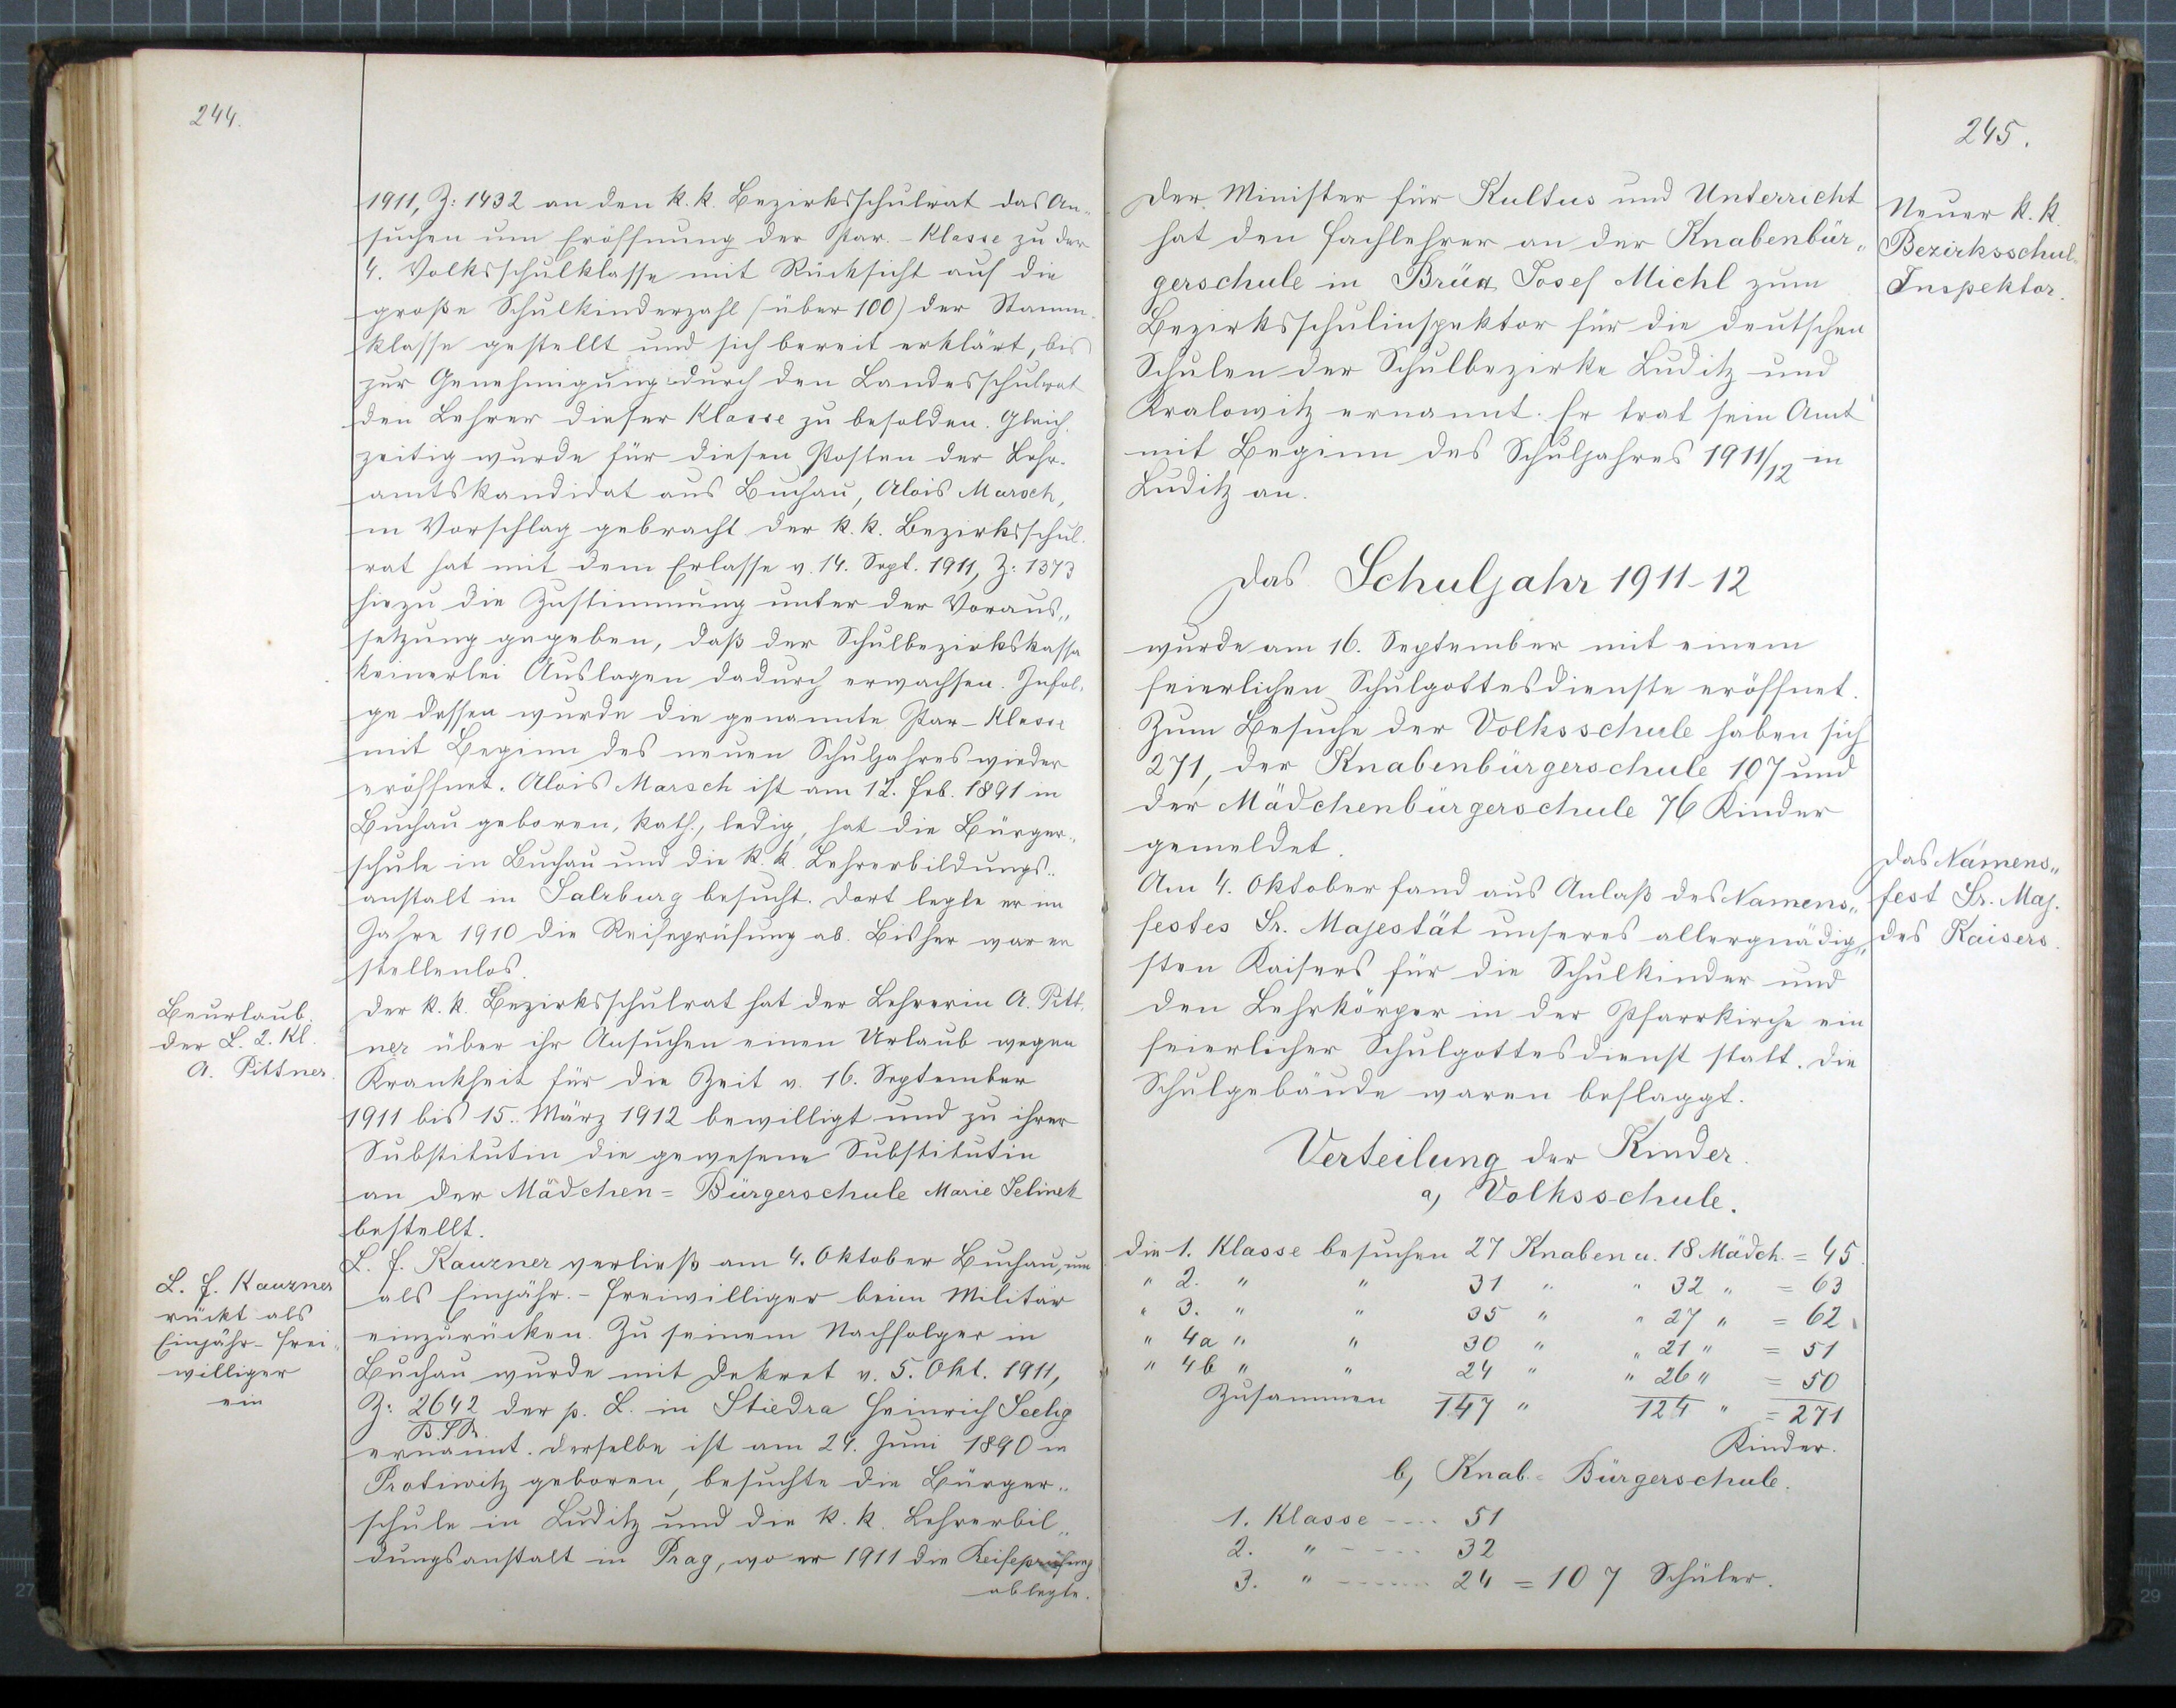 244.
1911, Z: 1432 an den k. k. Bezirksschulrat das An-
suchen um Eröffnung der Par.-Klasse zu der
4. Volksschulklasse mit Rücksicht auf die
große Schulkinderzahl (über 100) der Stamm-
klasse gestellt und sich bereit erklärt, bis
zur Genehmigung durch den Landesschulrat
den Lehrer dieser Klasse zu besolden. Gleich-
zeitig wurde für diesen Posten der Lehr-
amtskandidat aus Buchau, Alois Marsch,
in Vorschlag gebracht. Der k. k. Bezirksschul-
rat hat mit dem Erlasse v. 14. Sept. 1911, Z: 1373
hiezu die Zustimmung unter der Voraus„
setzung gegeben, daß der Schulbezirkskassa
keinerlei Auslagen dadurch erwachsen. Zufol-
ge dessen wurde die genannte Par-Klasse
mit Beginn des neuen Schuljahres wieder
eröffnet. Alois Marsch ist am 12. Feb. 1891 in
Buchau geboren, kath., ledig, hat die Bürger„
schule in Buchau und die k. k. Lehrerbildungs„
anstalt in Salzburg besucht. Dort legte er im
Jahre 1910 die Reifeprüfung ab. Bisher war er
stellenlos.
Beurlaub.
der L. 2. Kl.
A. Pittner.
Der k. k. Bezirksschulrat hat der Lehrerin A. Pitt-
ner über ihr Ansuchen einen Urlaub wegen
Krankheit für die Zeit v. 16. September
1911 bis 15. März 1912 bewilligt und zu ihrer
Substitutin die gewesene Substitutin
an der Mädchen= Bürgerschule Marie Jelinek
bestellt.
L. F. Kauzner
rückt als
Einjähr-Frei„
williger
ein
L. F. Kauzner verließ am 4. Oktober Buchau, um
als Einjähr.-Freiwilliger beim Militär
einzurücken. Zu seinem Nachfolger in
Buchau wurde mit Dekret v. 5. Okt. 1911,
Z: 2642 der p. L. in Stiedra Heinrich Seelig
B.S.R.
ernannt. Derselbe ist am 24. Juni 1890 in
Protiwitz geboren, besuchte die Bürger„
schule in Luditz und die k. k. Lehrerbil„
dungsanstalt in Prag, wo er 1911 die Reifeprüfung
ablegte.
245.
Neuer k. k.
Bezirksschul-
Inspektor.
Der Minister für Kultus und Unterricht
hat den Fachlehrer an der Knabenbür„
gerschule in Brüx Josef Michl zum
Bezirksschulinspektor für die deutschen
Schulen der Schulbezirke Luditz und
Kralowitz ernannt. Er trat sein Amt
mit Beginn des Schuljahres 1911/12 in
Luditz an.
Das Schuljahr 1911-12
wurde am 16. September mit einem
feierlichen Schulgottesdienste eröffnet.
Zum Besuche der Volksschule haben sich
271, der Knabenbürgerschule 107 und
der Mädchenbürgerschule 76 Kinder
gemeldet.
Das Namens„
fest Sr. Maj.
des Kaisers.
Am 4. Oktober fand aus Anlaß des Namens„
festes Sr. Majestät unseres allergnädig„
sten Kaisers für die Schulkinder und
den Lehrkörper in der Pfarrkirche ein
feierlicher Schulgottesdienst statt. Die
Schulgebäude waren beflaggt.
Verteilung der Kinder.
a, Volksschule.
Die 1. Klasse besuchen 27 Knaben u. 18 Mädch. = 45
" 2. " " 31 " " 32 " = 63
" 3. " " 35 " " 27 " = 62
" 4a " " 30 " " 21 " = 51
" 4b " " 24 " " 26 " = 50
Zusammen 147 " 124 " = 271
Kinder.
b, Knab.= Bürgerschule.
1. Klasse ---- 51
2. " ----- 32
3. " ------ 24 = 107 Schüler.
27
29